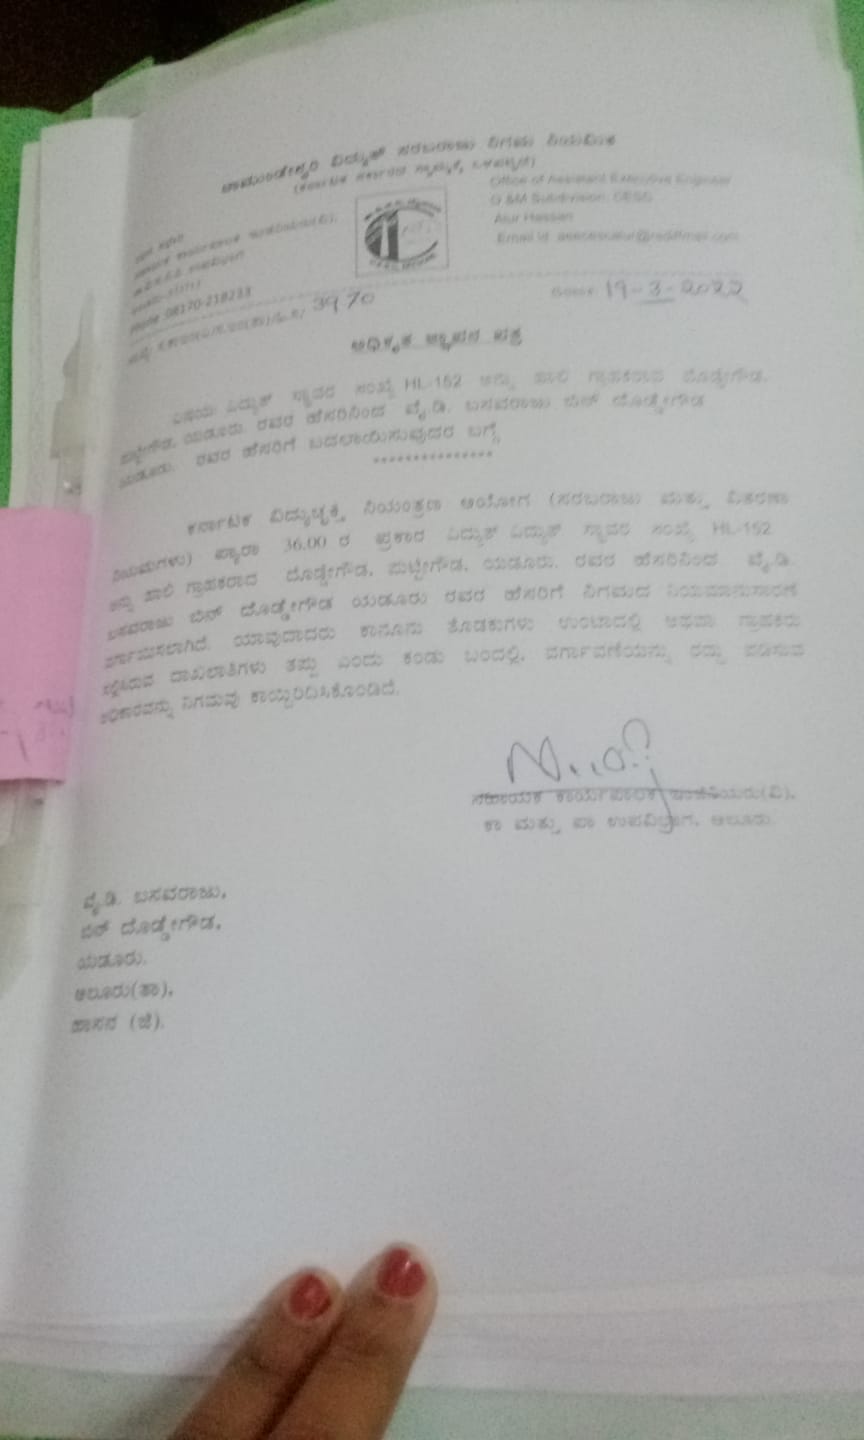 ಚಾಮುಂಡೇಶ್ವರಿ ವಿದ್ಯುತ್ ಸರಬರಾಜು ನಿಗಮ ನಿಯಮಿತ
(ಕರ್ನಾಟಕ ಸರ್ಕಾರದ ಸ್ವಾಮ್ಯಕ್ಕೆ ಒಳಪಟ್ಟಿದೆ)
Office of Assistant Executive Engineer
O &M Subdivision, CESC
Alur Hassan
Email Id aeecescalur@rediffmail.com
Phone :08170-218233
3970
19-3-2022
ಅಧಿಕೃತ ಜ್ಞಾಪನ ಪತ್ರ
ವಿಷಯ: ವಿದ್ಯುತ್ ಸ್ಥಾವರ ಸಂಖ್ಯೆ HL-152 ಅನ್ನು ಹಾಲಿ ಗ್ರಾಹಕರಾದ ದೊಡ್ಡೇಗೌಡ,
ಪುಟ್ಟೇಗೌಡ, ಯಡೂರು. ರವರ ಹೆಸರಿನಿಂದ ವೈ.ಡಿ. ಬಸವರಾಜು ಬಿನ್ ದೊಡ್ಡೇಗೌಡ
ಯಡೂರು. ರವರ ಹೆಸರಿಗೆ ಬದಲಾಯಿಸುವುದರ ಬಗ್ಗೆ
***************
ಕರ್ನಾಟಕ ವಿದ್ಯುಚ್ಛಕ್ತಿ ನಿಯಂತ್ರಣ ಆಯೋಗ (ಸರಬರಾಜು ಮತ್ತು ವಿತರಣಾ
ನಿಯಮಗಳು) ಪ್ಯಾರಾ 36.00 ರ ಪ್ರಕಾರ ವಿದ್ಯುತ್ ವಿದ್ಯುತ್ ಸ್ಥಾವರ ಸಂಖ್ಯೆ HL-152
ಅನ್ನು ಹಾಲಿ ಗ್ರಾಹಕರಾದ ದೊಡ್ಡೇಗೌಡ, ಪುಟ್ಟೇಗೌಡ, ಯಡೂರು. ರವರ ಹೆಸರಿನಿಂದ ವೈ.ಡಿ.
ಬಸವರಾಜು ಬಿನ್ ದೊಡ್ಡೇಗೌಡ ಯಡೂರು ರವರ ಹೆಸರಿಗೆ ನಿಗಮದ ನಿಯಮಾನುಸಾರಣೆ
ವರ್ಗಾಯಿಸಲಾಗಿದೆ. ಯಾವುದಾದರು ಕಾನೂನು ತೊಡಕುಗಳು ಉಂಟಾದಲ್ಲಿ ಅಥವಾ ಗ್ರಾಹಕರು
ಸಲ್ಲಿಸಿರುವ ದಾಖಲಾತಿಗಳು ತಪ್ಪು ಎಂದು ಕಂಡು ಬಂದಲ್ಲಿ, ವರ್ಗಾವಣೆಯನ್ನು ರದ್ದು ಪಡಿಸುವ
ಅಧಿಕಾರವನ್ನು ನಿಗಮವು ಕಾಯ್ದಿರಿಸಿಕೊಂಡಿದೆ.
ಸಹಾಯಕ ಕಾರ್ಯಪಾಲಕ ಇಂಜಿನಿಯರು(ವಿ),
ಕಾ ಮತ್ತು ಪಾ ಉಪವಿಭಾಗ, ಆಲೂರು.
ವೈ.ಡಿ. ಬಸವರಾಜು,
ಬಿನ್ ದೊಡ್ಡೇಗೌಡ,
ಯಡೂರು.
ಆಲೂರು(ತಾ),
ಹಾಸನ (ಜಿ).